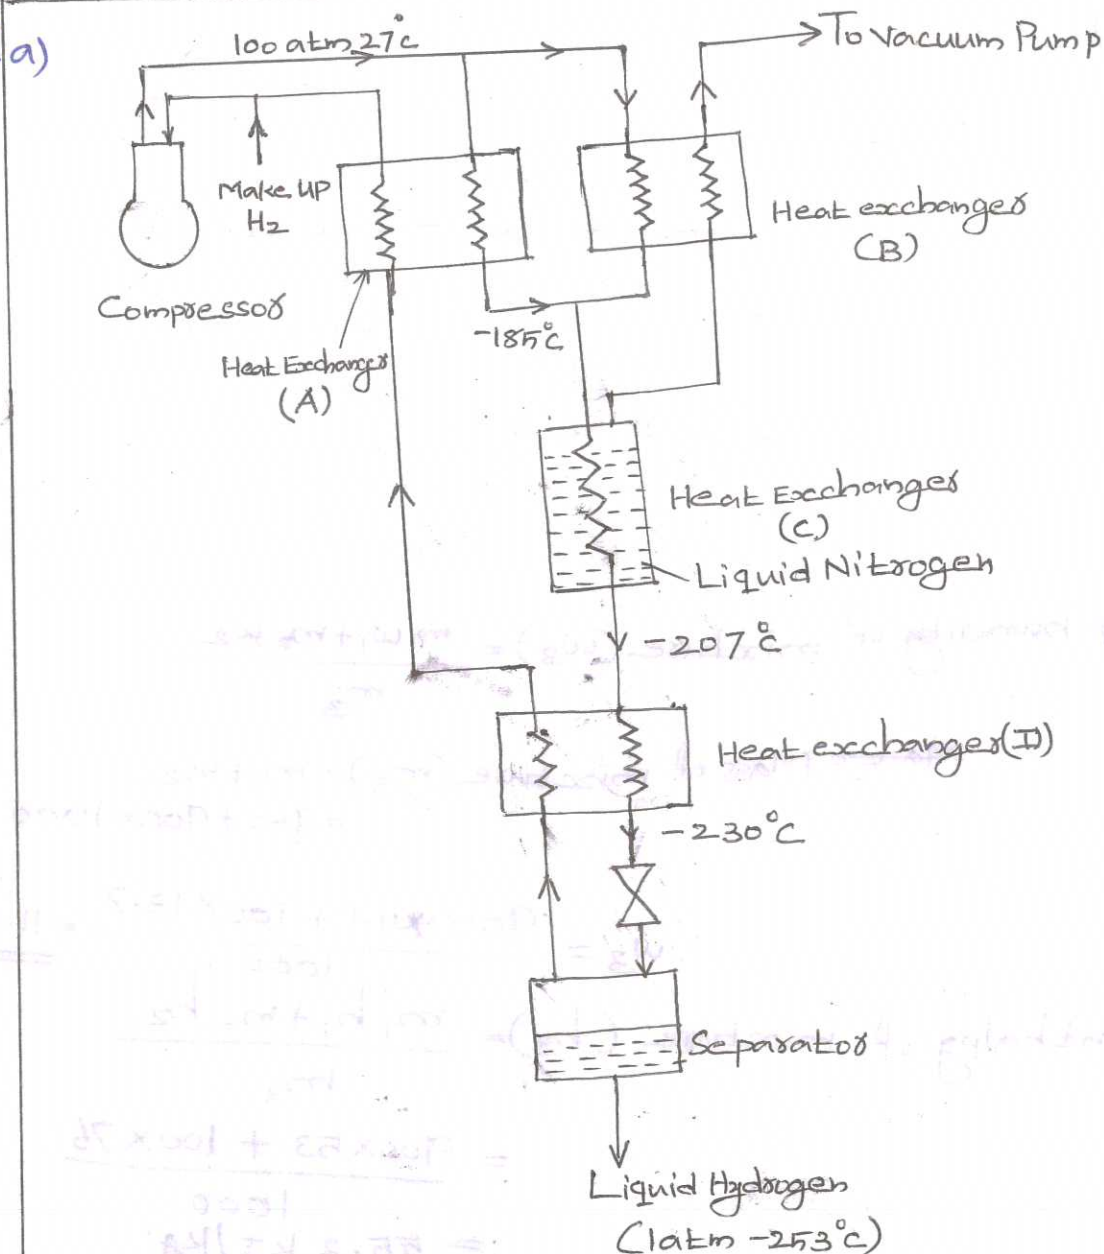 a)
100 atm 27°C
To Vacuum Pump
Make up
H2
Heat exchanger
(B)
Compressor
-185°C
Heat Exchanger
(A)
Heat Exchanger
(C)
Liquid Nitrogen
-207°C
Heat exchanger(D)
-230°C
Separator
Liquid Hydrogen
(1atm -253°C)